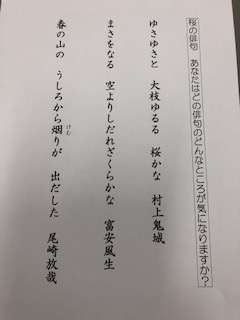 桜の俳句　あなたはどの俳句のどんなところが気になりますか？
ゆさゆさと　大枝ゆるる　桜かな　村上鬼城
まさをなる　空よりしだれざくらかな　富安風生
春の山の　うしろから烟りが　出だした　尾崎放哉
けむ